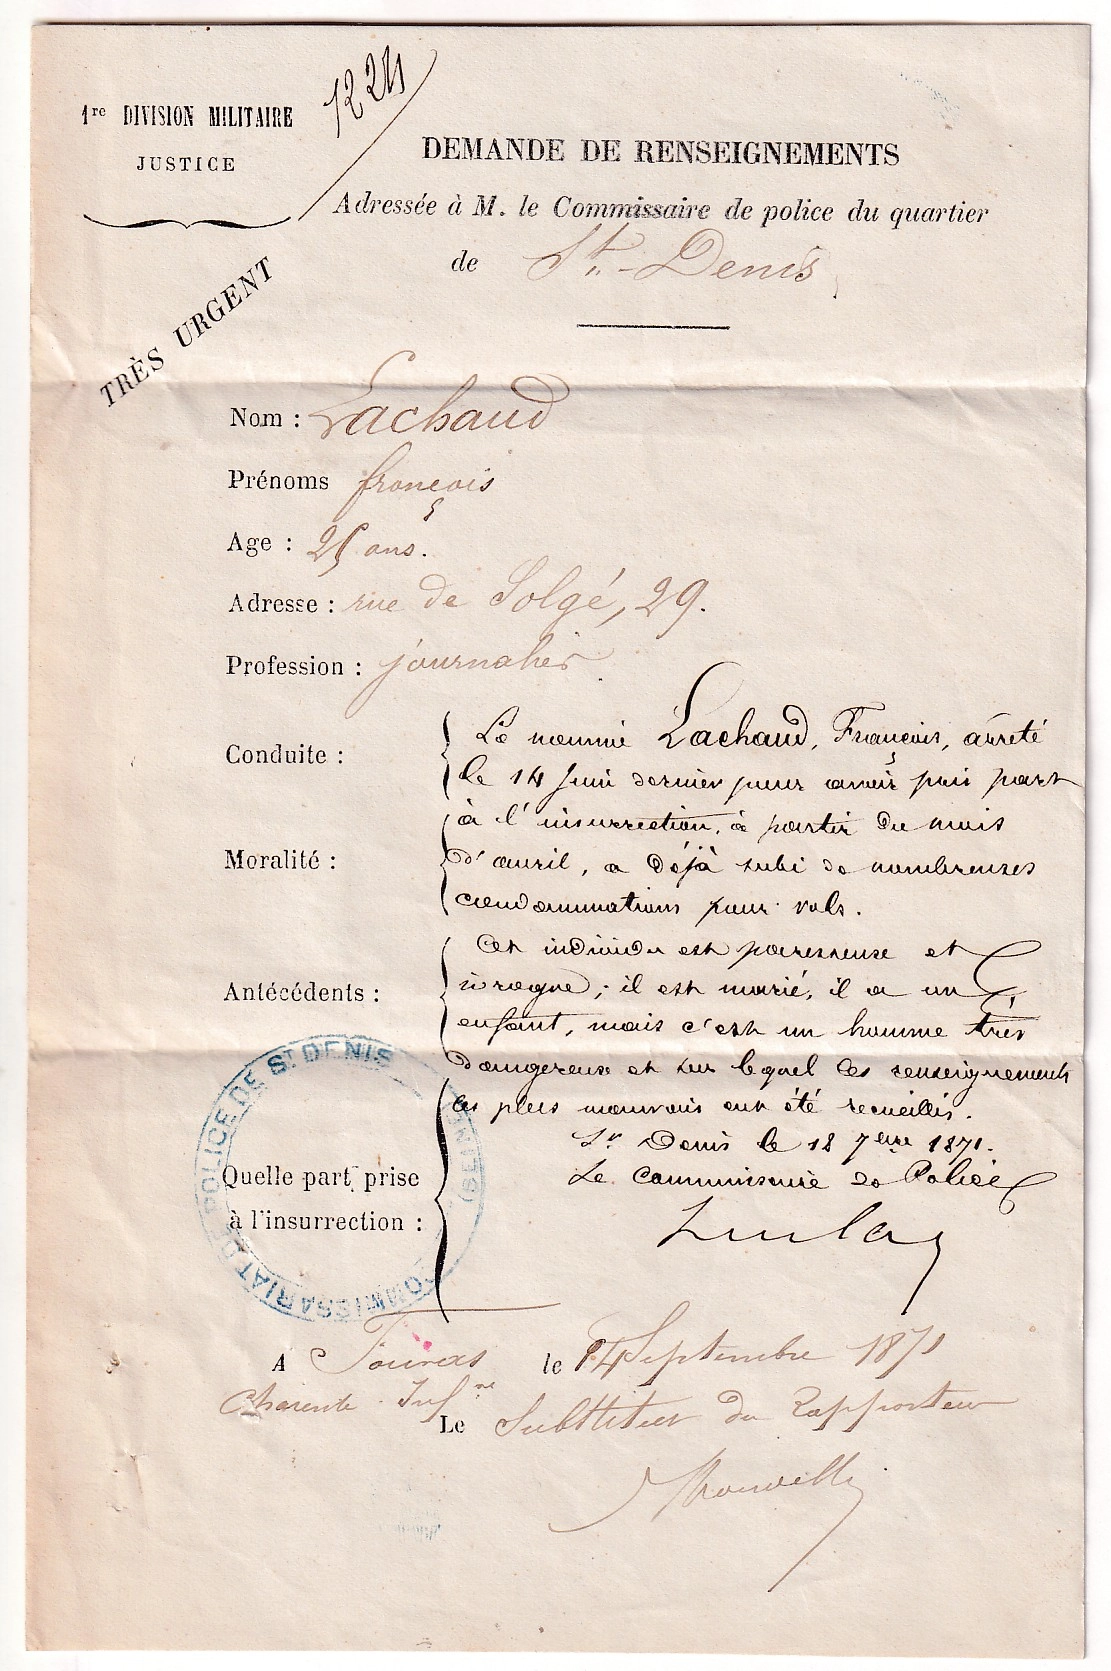 1re DIVISION MILITAIRE
JUSTICE
1224
DEMANDE DE RENSEIGNEMENTS
Adressée à M. le Commissaire de police du quartier
de St.-Denis
TRÈS URGENT
Nom : Lachaud
Prénoms françois
Age : 25 ans.
Adresse : rue de Solgé, 29.
Profession : journalier
Conduite :
Moralité :
Antécédents :
Quelle part prise
à l'insurrection :
Le nommé Lachaud, François, arrêté
le 14 Juin dernier pour avoir pris part
à l'insurrection, à partir du mois
d'avril, a déjà subi de nombreuses
condamnations pour vols.
Cet individu est paresseux et
ivrogne ; il est marié, il a un
enfant, mais c'est un homme très
dangereux et sur lequel les renseignements
les plus mauvais ont été recueillis.
St Denis le 18 7bre 1871.
Le Commissaire de Police
COMMISSARIAT DE POLICE DE ST DENIS (SEINE)
A Fouras le 14 Septembre 1871
Charente Infre
Le Substitut du Rapporteur